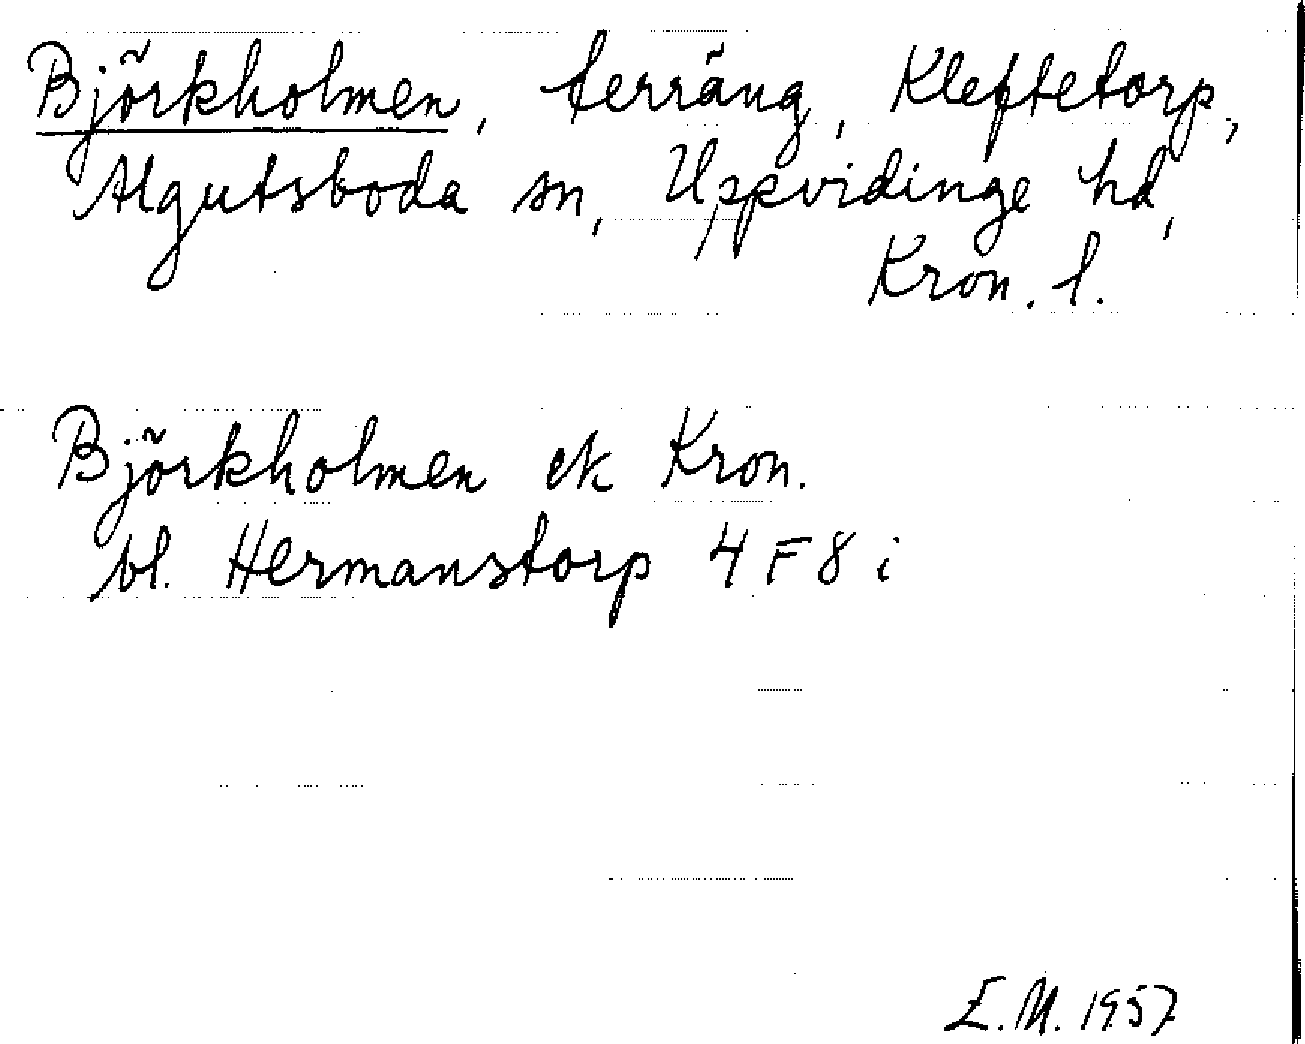 Björkholmen, terräng, Kleftetorp,
Algutsboda sn, Uppvidinge hd,
Kron. l.
Björkholmen ek Kron.
bl. Hermanstorp 4 F 8 i
E.M. 1957